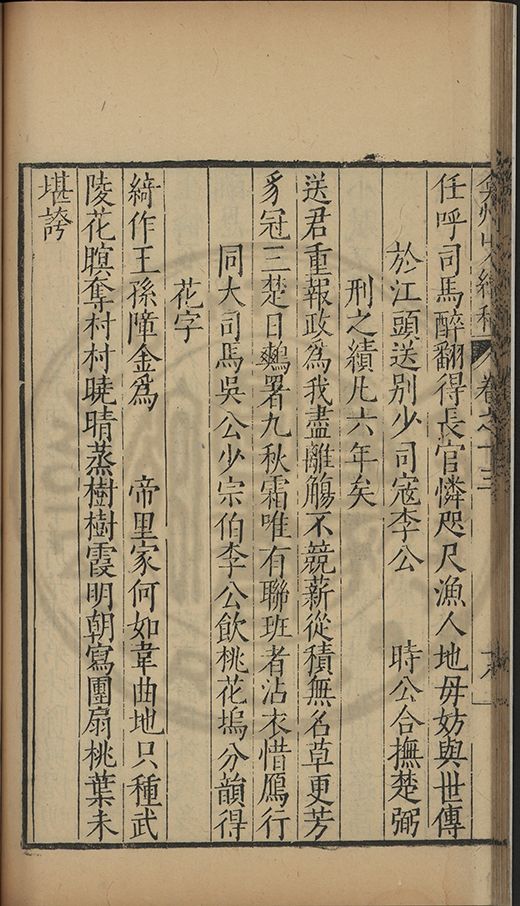 弇州山人續稿 卷之十三
任呼司馬醉翻得長官憐咫尺漁人地毋妨與世傳
於江頭送別少司寇李公 時公合撫楚弼
刑之績凡六年矣
送君重報政為我盡離觴不競薪從積無名草更芳
豸冠三楚日鷞署九秋霜唯有聯班者沾衣惜鴈行
同大司馬吳公少宗伯李公飲桃花塢分韻得
花字
綺作王孫障金為 帝里家何如韋曲地只種武
陵花暝奪村村曉晴蒸樹樹霞明朝寫團扇桃葉未
堪誇